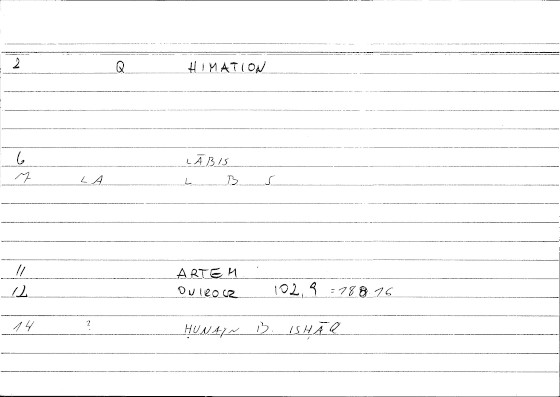 2 Q HIMATION
6 LĀBIS
7 LA L B S
11 ARTEM
12 102,9 = 18816
14 ? ḤUNAIN B. ISḤĀQ